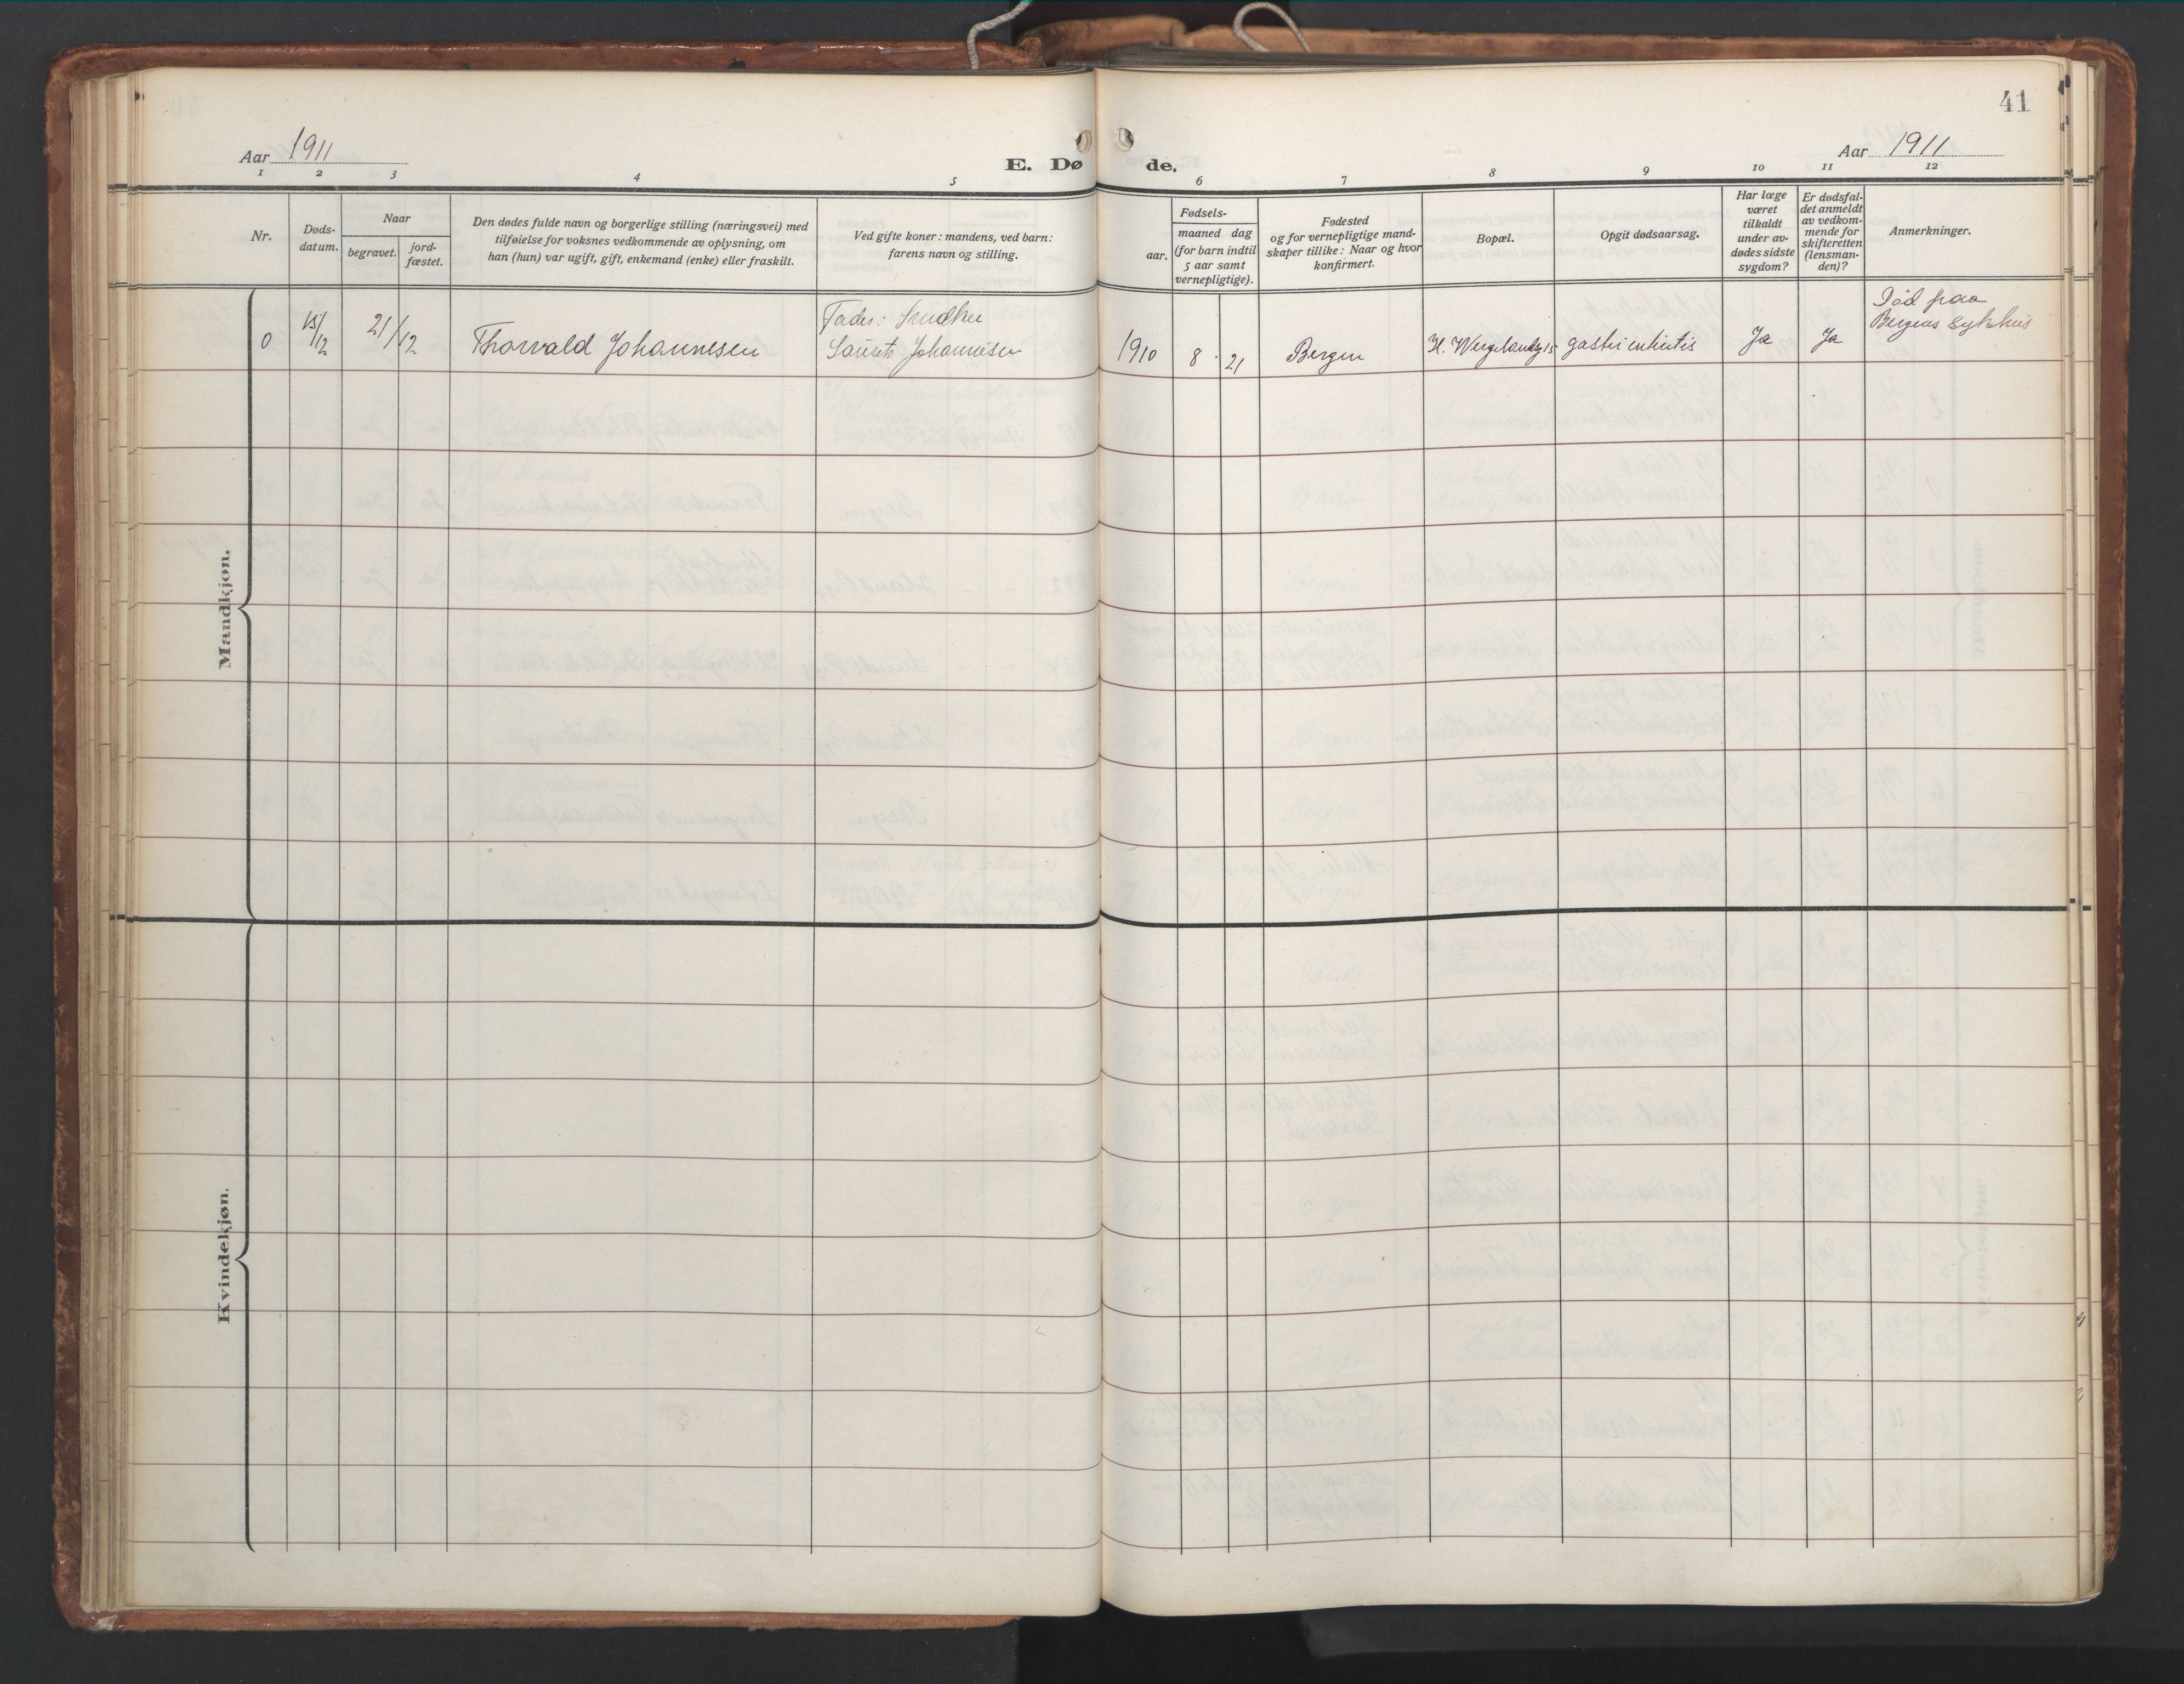 41
Aar 1911
Aar 1911
E. Dø de.
1 2 3 4 5 6 7 8 9 10 11 12
Nr.
Døds-
datum.
Naar
begravet.
jord-
fæstet.
Den dødes fulde navn og borgerlige stilling (næringsvei) med
tilføielse for voksnes vedkommende av oplysning, om
han (hun) var ugift, gift, enkemand (enke) eller fraskilt.
Ved gifte koner: mandens, ved barn:
farens navn og stilling.
Fødsels-
aar.
maaned dag
(for barn indtil
5 aar samt
vernepligtige).
Fødested
og for vernepligtige mand-
skaper tillike: Naar og hvor
konfirmert.
Bopæl.
Opgit dødsaarsag.
Har læge
været
tilkaldt
under av-
dødes sidste
sygdom?
Er dødsfal-
det anmeldt
av vedkom-
mende for
skifteretten
(lensman-
den)?
Anmerkninger.
Mandkjøn.
0
15/12
21/12
Thorvald Johannesen
Fader: Snedker
Laurits Johannesen
1910
8
21
Bergen
H. Wergelandsg 15
gastri enteritis
Ja
Ja
Død paa
Bergens Sykehus
Kvindekjøn.